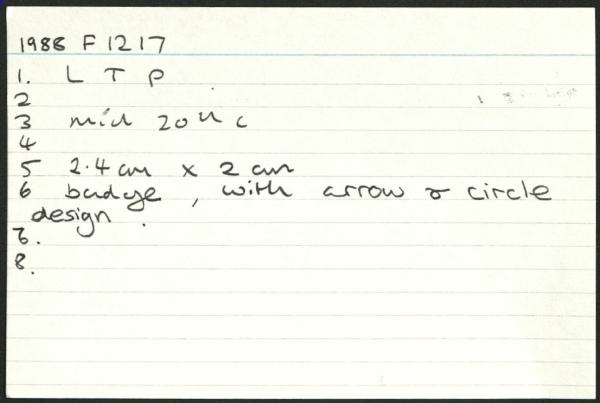 1988 F 1217
1. L T P
2
3 mid 20th c
4
5 2.4 cm x 2 cm
6 badge, with arrow & circle
design.
7.
8.